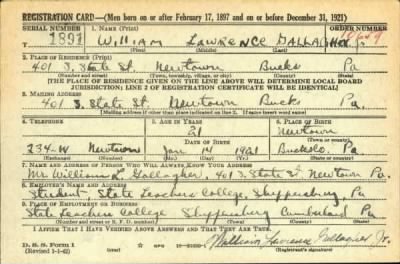 REGISTRATION CARD—(Men born on or after February 17, 1897 and on or before December 31, 1921)
SERIAL NUMBER 1. NAME (Print) ORDER NUMBER
1891 William Lawrence Gallagher Jr.
(First) (Middle) (Last)
2. PLACE OF RESIDENCE (Print)
401 S. State St. Newtown Bucks Pa
(Number and street) (Town, township, village, or city) (County) (State)
[THE PLACE OF RESIDENCE GIVEN ON THE LINE ABOVE WILL DETERMINE LOCAL BOARD
JURISDICTION; LINE 2 OF REGISTRATION CERTIFICATE WILL BE IDENTICAL]
3. MAILING ADDRESS
401 S. State St. Newtown Bucks Pa.
[Mailing address if other than place indicated on line 2. If same insert word same]
4. TELEPHONE 5. AGE IN YEARS 6. PLACE OF BIRTH
21 Newtown
DATE OF BIRTH (Town or county)
234-W Newtown Jan 14 1921 Bucks Co. Pa
(Exchange) (Number) (Mo.) (Day) (Yr.) (State or country)
7. NAME AND ADDRESS OF PERSON WHO WILL ALWAYS KNOW YOUR ADDRESS
Mr. William L. Gallagher, 401 S. State St Newtown Pa.
8. EMPLOYER'S NAME AND ADDRESS
Student, State Teachers College, Shippensburg, Pa
9. PLACE OF EMPLOYMENT OR BUSINESS
State Teachers College Shippensburg Cumberland Pa
(Number and street or R. F. D. number) (Town) (County) (State)
I AFFIRM THAT I HAVE VERIFIED ABOVE ANSWERS AND THAT THEY ARE TRUE.
D. S. S. Form 1
(Revised 1-1-42) GPO William Lawrence Gallagher Jr.